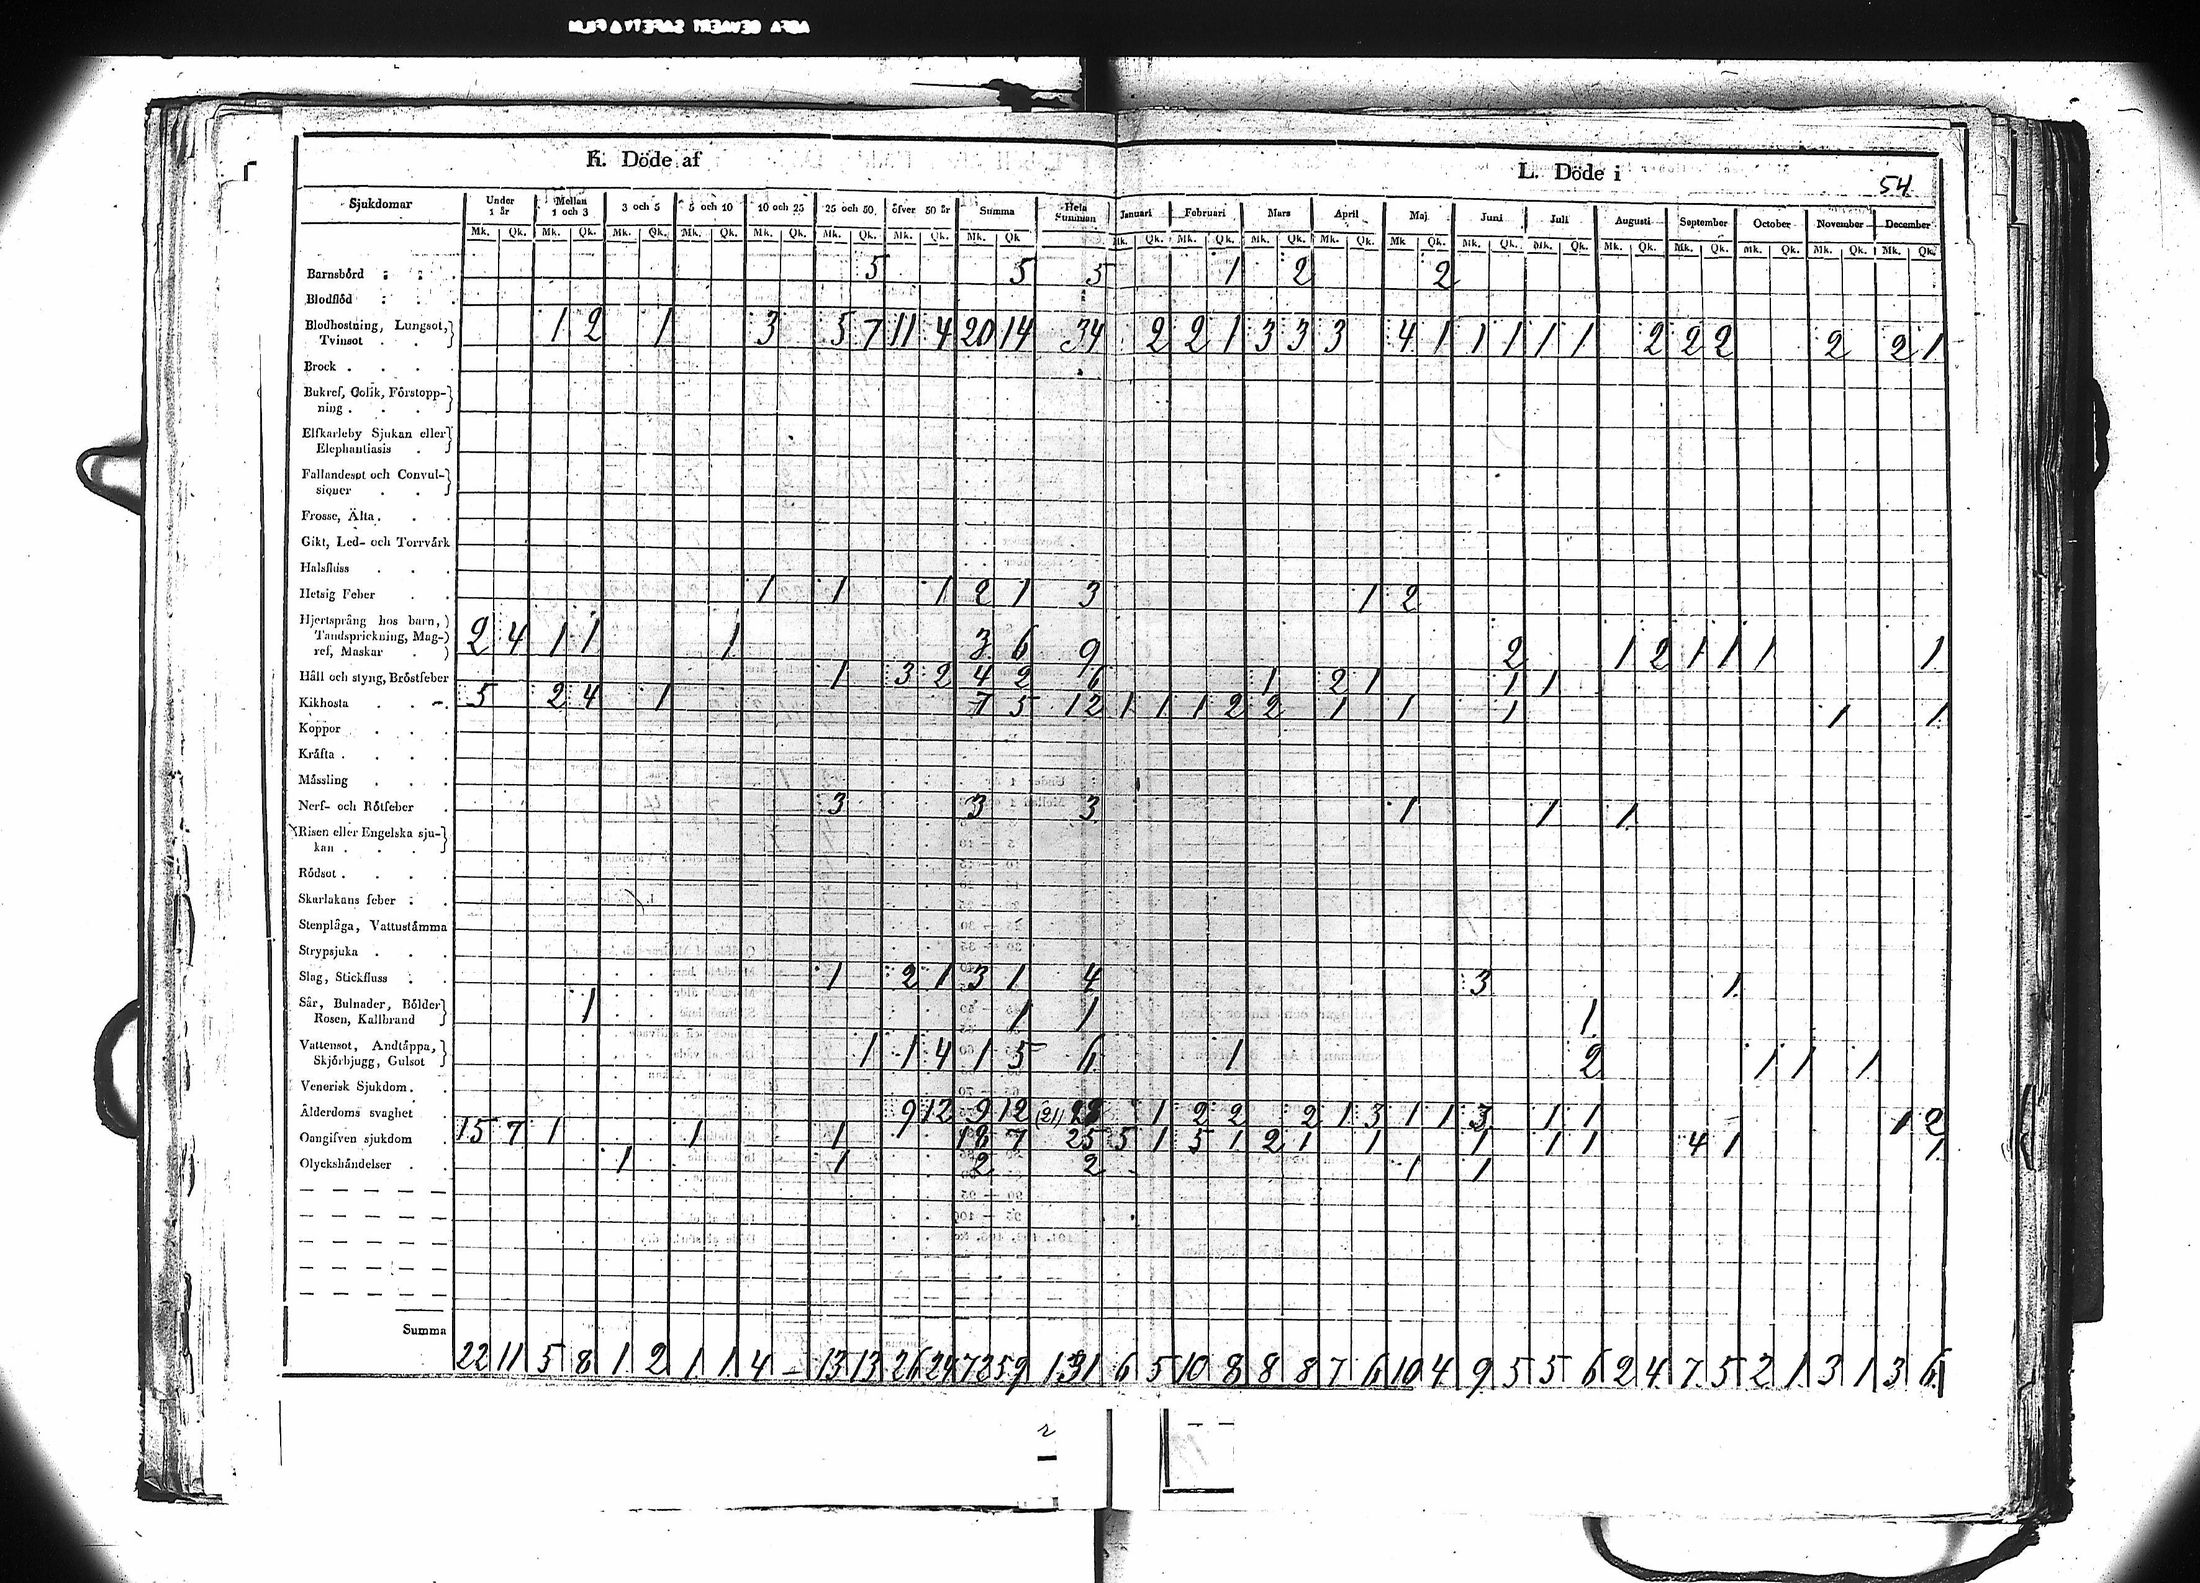 K. Döde af
L. Döde i
54
Sjukdomar Under 1 år Mellan 1 och 3 3 och 5 5 och 10 10 och 25 25 och 50 öfver 50 år Summa Hela Summan Januari Februari Mars April Maj Juni Juli Augusti September October November December
Mk. Qk. Mk. Qk. Mk. Qk. Mk. Qk. Mk. Qk. Mk. Qk. Mk. Qk. Mk. Qk Mk. Qk. Mk. Qk. Mk. Qk. Mk. Qk. Mk Qk. Mk. Qk. Mk. Qk. Mk. Qk. Mk. Qk. Mk. Qk. Mk. Qk. Mk. Qk.
Barnsbörd 5 5 5 1 2 2
Blodflöd
Blodhostning, Lungsot,
Tvinsot 1 2 1 3 5 7 11 4 20 14 34 2 2 1 3 3 3 4 1 1 1 1 1 2 2 2 2 2 1
Brock
Bukref, Colik, Förstopp-
ning
Elfkarleby Sjukan eller
Elephantiasis
Fallandesot och Convul-
sioner
Frosse, Älta
Gikt, Led- och Torrvärk
Halsfluss
Hetsig Feber 1 1 1 2 1 3 1 2
Hjertsprång hos barn,
Tandsprickning, Mag-
ref, Maskar 2 4 1 1 1 3 6 9 2 1 2 1 1 1 1
Håll och styng, Bröstfeber 1 3 2 4 2 6 1 2 1 1 1
Kikhosta 5 2 4 1 7 5 12 1 1 1 2 2 1 1 1 1 1
Koppor
Kräfta
Mässling
Nerf- och Rötfeber 3 3 3 1 1 1
Risen eller Engelska sju-
kan
Rödsot
Skarlakans feber
Stenplåga, Vattustämma
Strypsjuka
Slag, Stickfluss 1 2 1 3 1 4 3 1
Sår, Bulnader, Bölder
Rosen, Kallbrand 1 1 1 1
Vattensot, Andtäppa,
Skjörbjugg, Gulsot 1 1 4 1 5 6 1 2 1 1 1
Venerisk Sjukdom
Ålderdoms svaghet 9 12 9 12 (21) 1 2 2 2 1 3 1 1 3 1 1 1 2
Oangifven sjukdom 15 7 1 1 1 18 7 25 5 1 5 1 2 1 1 1 1 1 4 1 1
Olyckshändelser 1 1 2 2 1 1
Summa
22 11 5 8 1 2 1 1 4 – 13 13 26 24 72 59 131 6 5 10 8 8 8 7 6 10 4 9 5 5 6 2 4 7 5 2 1 3 1 3 6